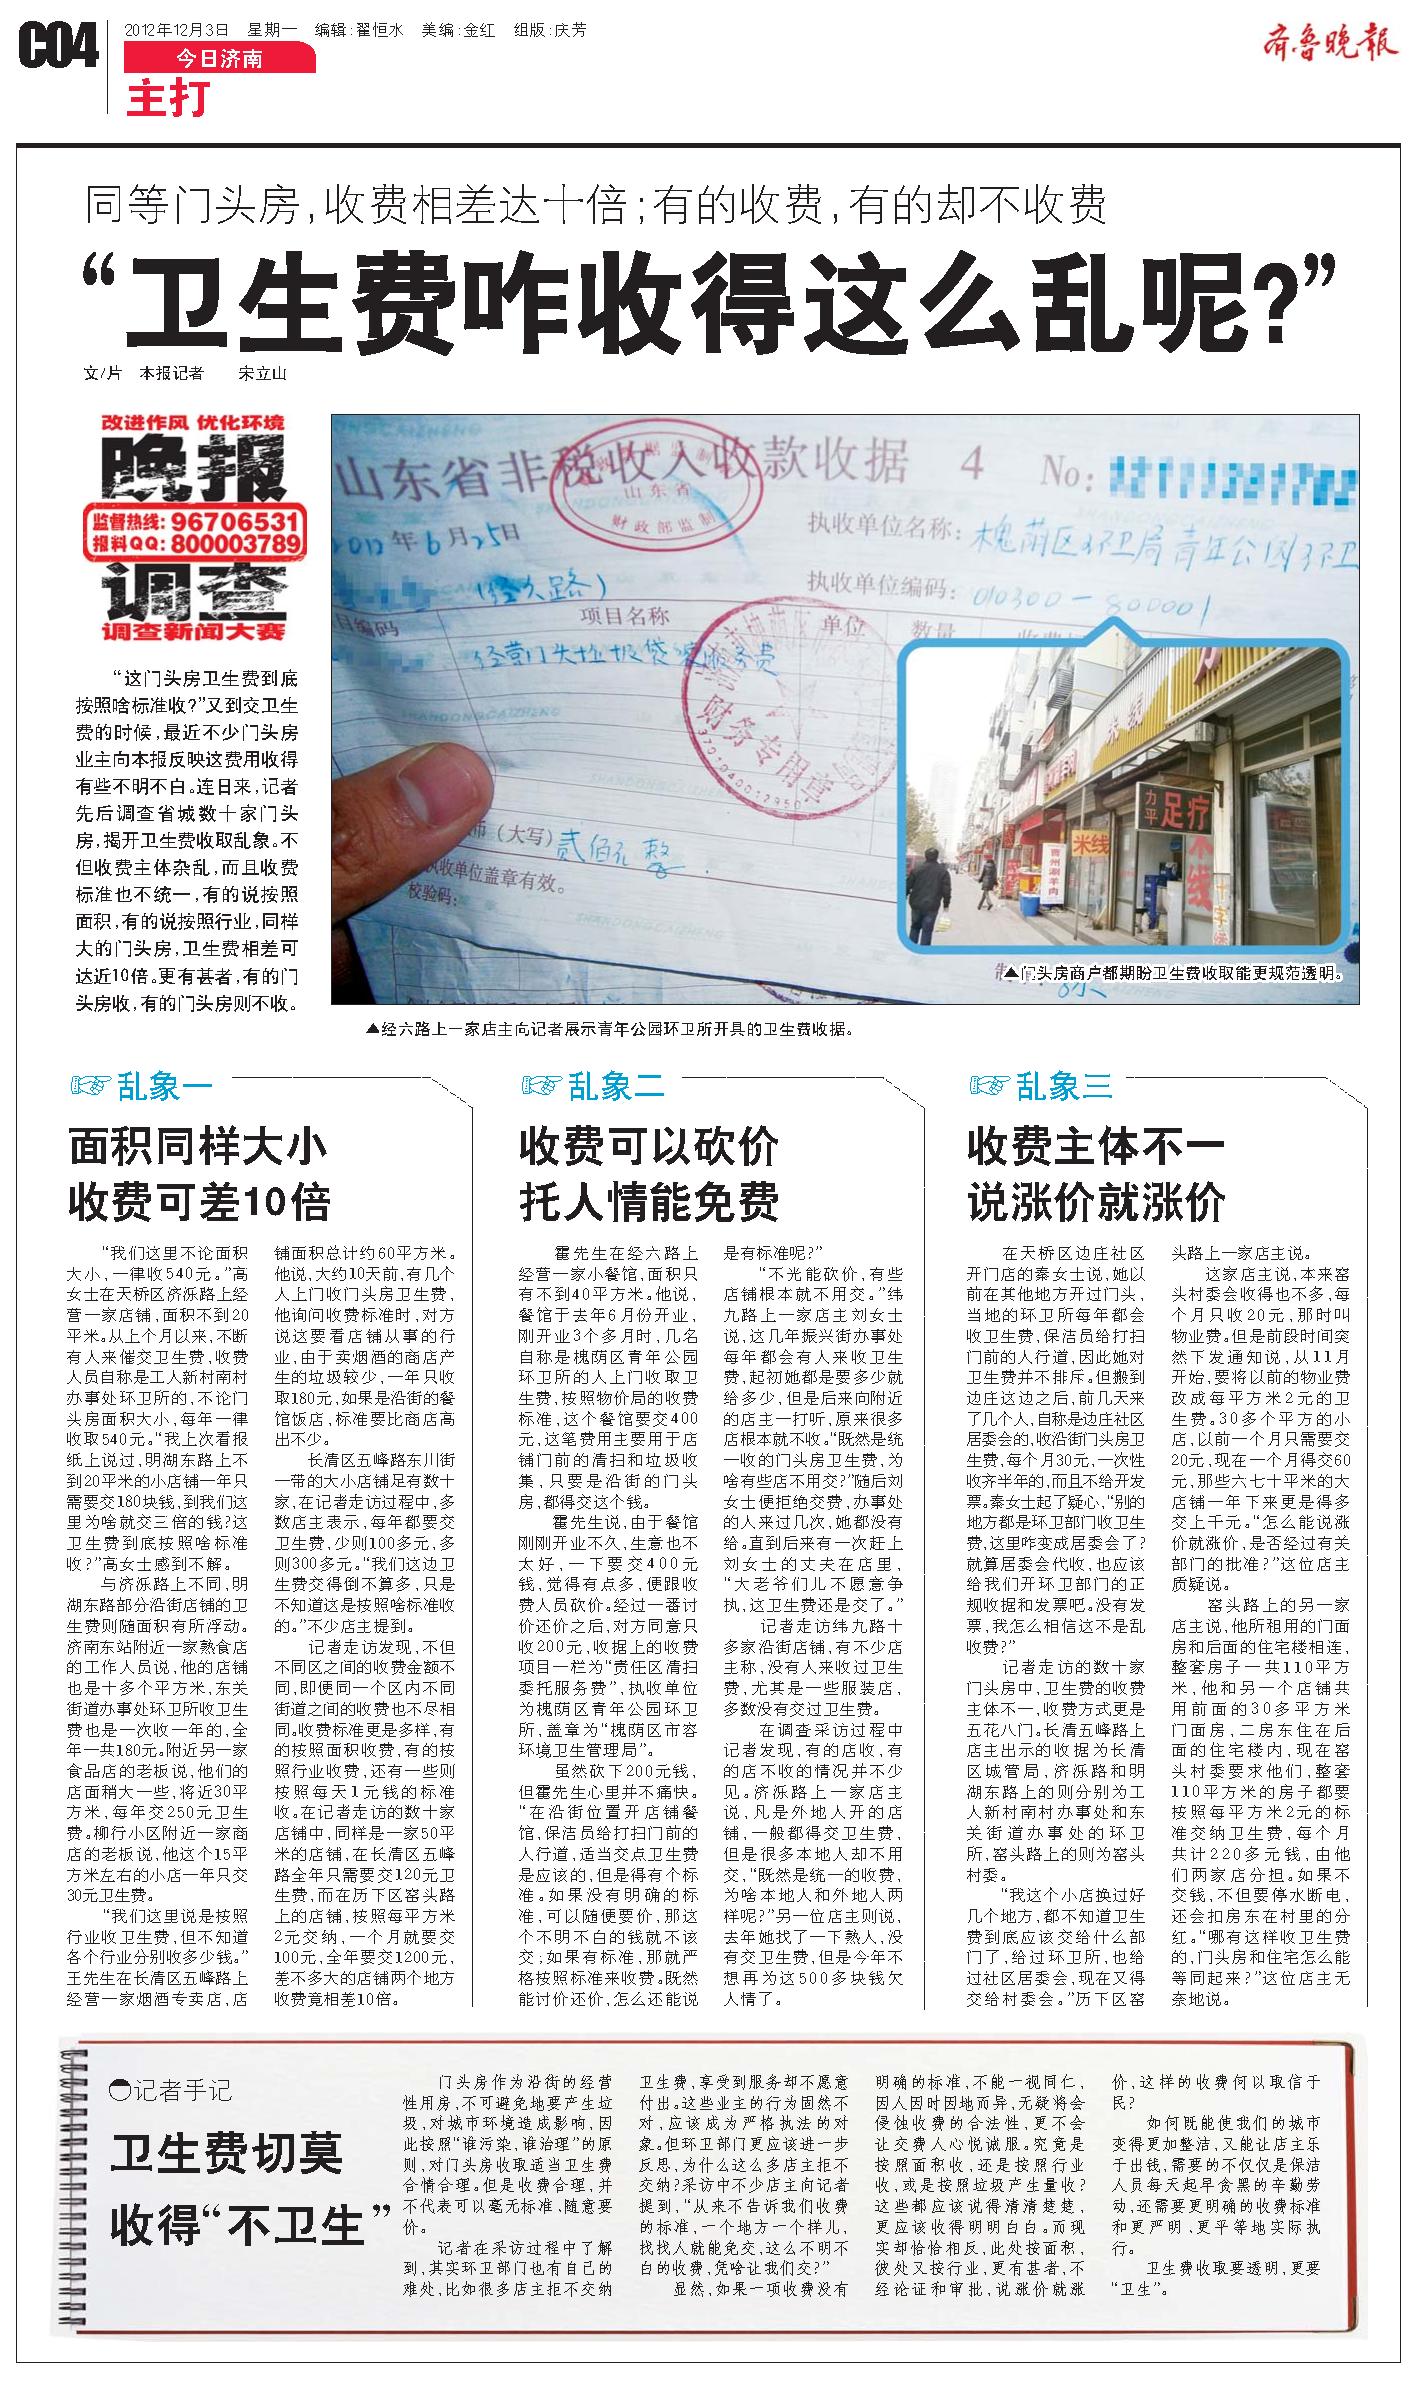 C04
2012年12月3日 星期一 编辑:翟恒水 美编:金红 组版:庆芳
今日济南
主打
齐鲁晚报
同等门头房,收费相差达十倍;有的收费,有的却不收费
“卫生费咋收得这么乱呢?”
文/片 本报记者 宋立山
改进作风 优化环境
晚报
监督热线:96706531
报料QQ:800003789
调查
调查新闻大赛
“这门头房卫生费到底
按照啥标准收?”又到交卫生
费的时候,最近不少门头房
业主向本报反映这费用收得
有些不明不白。连日来,记者
先后调查省城数十家门头
房,揭开卫生费收取乱象。不
但收费主体杂乱,而且收费
标准也不统一,有的说按照
面积,有的说按照行业,同样
大的门头房,卫生费相差可
达近10倍。更有甚者,有的门
头房收,有的门头房则不收。
山东省非税收入收款收据 4 No:
山东省
财政部监制
2012年6月25日
执收单位名称:槐荫区环卫局青年公园环卫
(经六路)
执收单位编码:010300-800001
项目编码 项目名称 单位 数量
经营门头垃圾袋装服务费
财务专用章
币(大写)贰佰元整
执收单位盖章有效。
校验码:
力平 足疗
米线
▲门头房商户都期盼卫生费收取能更规范透明。
▲经六路上一家店主向记者展示青年公园环卫所开具的卫生费收据。
乱象一
面积同样大小
收费可差10倍
“我们这里不论面积
大小,一律收540元。”高
女士在天桥区济泺路上经
营一家店铺,面积不到20
平米。从上个月以来,不断
有人来催交卫生费,收费
人员自称是工人新村南村
办事处环卫所的,不论门
头房面积大小,每年一律
收取540元。“我上次看报
纸上说过,明湖东路上不
到20平米的小店铺一年只
需要交180块钱,到我们这
里为啥就交三倍的钱?这
卫生费到底按照啥标准
收?”高女士感到不解。
与济泺路上不同,明
湖东路部分沿街店铺的卫
生费则随面积有所浮动。
济南东站附近一家熟食店
的工作人员说,他的店铺
也是十多个平方米,东关
街道办事处环卫所收卫生
费也是一次收一年的,全
年一共180元。附近另一家
食品店的老板说,他们的
店面稍大一些,将近30平
方米,每年交250元卫生
费。柳行小区附近一家商
店的老板说,他这个15平
方米左右的小店一年只交
30元卫生费。
“我们这里说是按照
行业收卫生费,但不知道
各个行业分别收多少钱。”
王先生在长清区五峰路上
经营一家烟酒专卖店,店
铺面积总计约60平方米。
他说,大约10天前,有几个
人上门收门头房卫生费,
他询问收费标准时,对方
说这要看店铺从事的行
业,由于卖烟酒的商店产
生的垃圾较少,一年只收
取180元,如果是沿街的餐
馆饭店,标准要比商店高
出不少。
长清区五峰路东川街
一带的大小店铺足有数十
家,在记者走访过程中,多
数店主表示,每年都要交
卫生费,少则100多元,多
则300多元。“我们这边卫
生费交得倒不算多,只是
不知道这是按照啥标准收
的。”不少店主提到。
记者走访发现,不但
不同区之间的收费金额不
同,即便同一个区内不同
街道之间的收费也不尽相
同。收费标准更是多样,有
的按照面积收费,有的按
照行业收费,还有一些则
按照每天1元钱的标准
收。在记者走访的数十家
店铺中,同样是一家50平
米的店铺,在长清区五峰
路全年只需要交120元卫
生费,而在历下区窑头路
上的店铺,按照每平方米
2元交纳,一个月就要交
100元,全年要交1200元,
差不多大的店铺两个地方
收费竟相差10倍。
乱象二
收费可以砍价
托人情能免费
霍先生在经六路上
经营一家小餐馆,面积只
有不到40平方米。他说,
餐馆于去年6月份开业,
刚开业3个多月时,几名
自称是槐荫区青年公园
环卫所的人上门收取卫
生费,按照物价局的收费
标准,这个餐馆要交400
元,这笔费用主要用于店
铺门前的清扫和垃圾收
集,只要是沿街的门头
房,都得交这个钱。
霍先生说,由于餐馆
刚刚开业不久,生意也不
太好,一下要交400元
钱,觉得有点多,便跟收
费人员砍价。经过一番讨
价还价之后,对方同意只
收200元,收据上的收费
项目一栏为“责任区清扫
委托服务费”,执收单位
为槐荫区青年公园环卫
所,盖章为“槐荫区市容
环境卫生管理局”。
虽然砍下200元钱,
但霍先生心里并不痛快。
“在沿街位置开店铺餐
馆,保洁员给打扫门前的
人行道,适当交点卫生费
是应该的,但是得有个标
准。如果没有明确的标
准,可以随便要价,那这
个不明不白的钱就不该
交;如果有标准,那就严
格按照标准来收费。既然
能讨价还价,怎么还能说
是有标准呢?”
“不光能砍价,有些
店铺根本就不用交。”纬
九路上一家店主刘女士
说,这几年振兴街办事处
每年都会有人来收卫生
费,起初她都是要多少就
给多少,但是后来向附近
的店主一打听,原来很多
店根本就不收。“既然是统
一收的门头房卫生费,为
啥有些店不用交?”随后刘
女士便拒绝交费,办事处
的人来过几次,她都没有
给。直到后来有一次赶上
刘女士的丈夫在店里,
“大老爷们儿不愿意争
执,这卫生费还是交了。”
记者走访纬九路十
多家沿街店铺,有不少店
主称,没有人来收过卫生
费,尤其是一些服装店,
多数没有交过卫生费。
在调查采访过程中
记者发现,有的店收,有
的店不收的情况并不少
见。济泺路上一家店主
说,凡是外地人开的店
铺,一般都得交卫生费,
但是很多本地人却不用
交,“既然是统一的收费,
为啥本地人和外地人两
样呢?”另一位店主则说,
去年她找了一下熟人,没
有交卫生费,但是今年不
想再为这500多块钱欠
人情了。
乱象三
收费主体不一
说涨价就涨价
在天桥区边庄社区
开门店的秦女士说,她以
前在其他地方开过门头,
当地的环卫所每年都会
收卫生费,保洁员给打扫
门前的人行道,因此她对
卫生费并不排斥。但搬到
边庄这边之后,前几天来
了几个人,自称是边庄社区
居委会的,收沿街门头房卫
生费,每个月30元,一次性
收齐半年的,而且不给开发
票。秦女士起了疑心,“别的
地方都是环卫部门收卫生
费,这里咋变成居委会了?
就算居委会代收,也应该
给我们开环卫部门的正
规收据和发票吧。没有发
票,我怎么相信这不是乱
收费?”
记者走访的数十家
门头房中,卫生费的收费
主体不一,收费方式更是
五花八门。长清五峰路上
店主出示的收据为长清
区城管局,济泺路和明
湖东路上的则分别为工
人新村南村办事处和东
关街道办事处的环卫
所,窑头路上的则为窑头
村委。
“我这个小店换过好
几个地方,都不知道卫生
费到底应该交给什么部
门了,给过环卫所,也给
过社区居委会,现在又得
交给村委会。”历下区窑
头路上一家店主说。
这家店主说,本来窑
头村委会收得也不多,每
个月只收20元,那时叫
物业费。但是前段时间突
然下发通知说,从11月
开始,要将以前的物业费
改成每平方米2元的卫
生费。30多个平方的小
店,以前一个月只需要交
20元,现在一个月得交60
元,那些六七十平米的大
店铺一年下来更是得多
交上千元。“怎么能说涨
价就涨价,是否经过有关
部门的批准?”这位店主
质疑说。
窑头路上的另一家
店主说,他所租用的门面
房和后面的住宅楼相连,
整套房子一共110平方
米,他和另一个店铺共
用前面的30多平方米
门面房,二房东住在后
面的住宅楼内,现在窑
头村委要求他们,整套
110平方米的房子都要
按照每平方米2元的标
准交纳卫生费,每个月
共计220多元钱,由他
们两家店分担。如果不
交钱,不但要停水断电,
还会扣房东在村里的分
红。“哪有这样收卫生费
的,门头房和住宅怎么能
等同起来?”这位店主无
奈地说。
记者手记
卫生费切莫
收得“不卫生”
门头房作为沿街的经营
性用房,不可避免地要产生垃
圾,对城市环境造成影响,因
此按照“谁污染,谁治理”的原
则,对门头房收取适当卫生费
合情合理。但是收费合理,并
不代表可以毫无标准,随意要
价。
记者在采访过程中了解
到,其实环卫部门也有自己的
难处,比如很多店主拒不交纳
卫生费,享受到服务却不愿意
付出。这些业主的行为固然不
对,应该成为严格执法的对
象。但环卫部门更应该进一步
反思,为什么这么多店主拒不
交纳?采访中不少店主向记者
提到,“从来不告诉我们收费
的标准,一个地方一个样儿,
找找人就能免交,这么不明不
白的收费,凭啥让我们交?”
显然,如果一项收费没有
明确的标准,不能一视同仁,
因人因时因地而异,无疑将会
侵蚀收费的合法性,更不会
让交费人心悦诚服。究竟是
按照面积收,还是按照行业
收,或是按照垃圾产生量收?
这些都应该说得清清楚楚,
更应该收得明明白白。而现
实却恰恰相反,此处按面积,
彼处又按行业,更有甚者,不
经论证和审批,说涨价就涨
价,这样的收费何以取信于
民?
如何既能使我们的城市
变得更加整洁,又能让店主乐
于出钱,需要的不仅仅是保洁
人员每天起早贪黑的辛勤劳
动,还需要更明确的收费标准
和更严明、更平等地实际执
行。
卫生费收取要透明,更要
“卫生”。